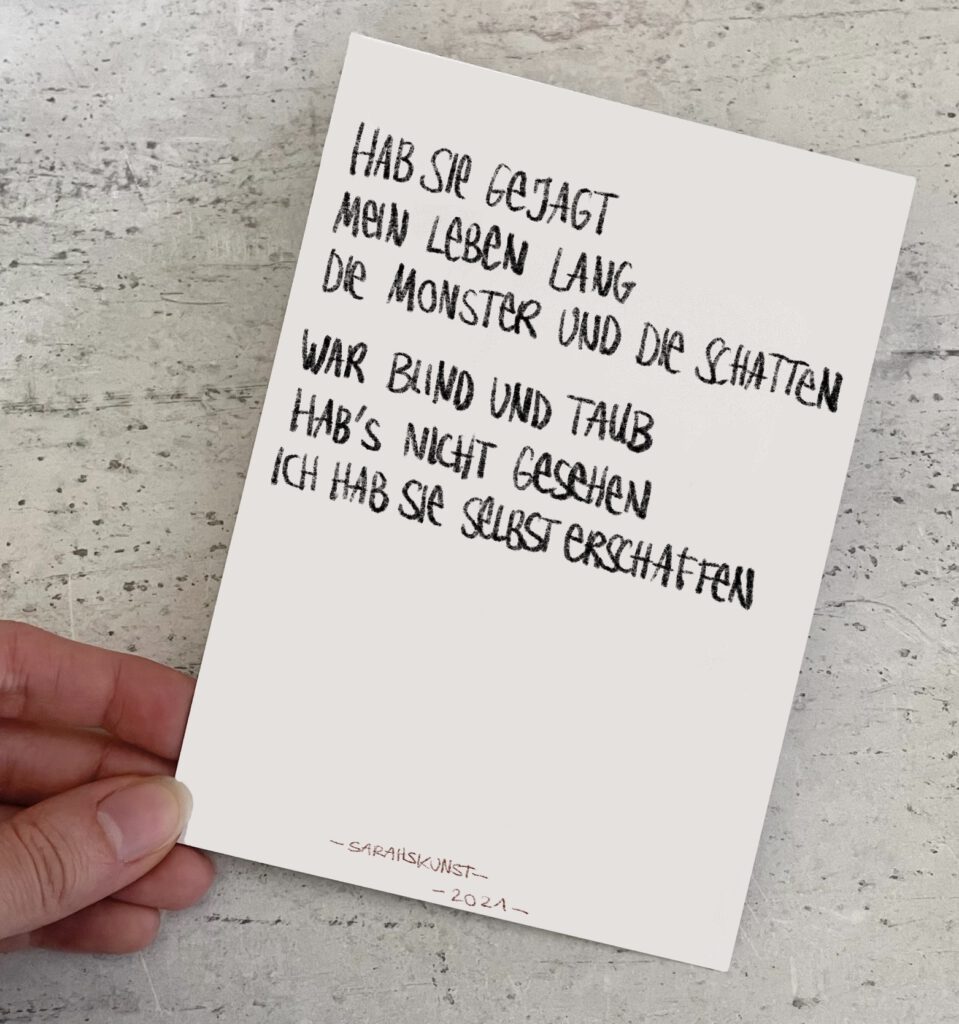 HAB SIE GEJAGT
MEIN LEBEN LANG
DIE MONSTER UND DIE SCHATTEN
WAR BLIND UND TAUB
HAB'S NICHT GESEHEN
ICH HAB SIE SELBST ERSCHAFFEN
-SARAHSKUNST-
-2021-